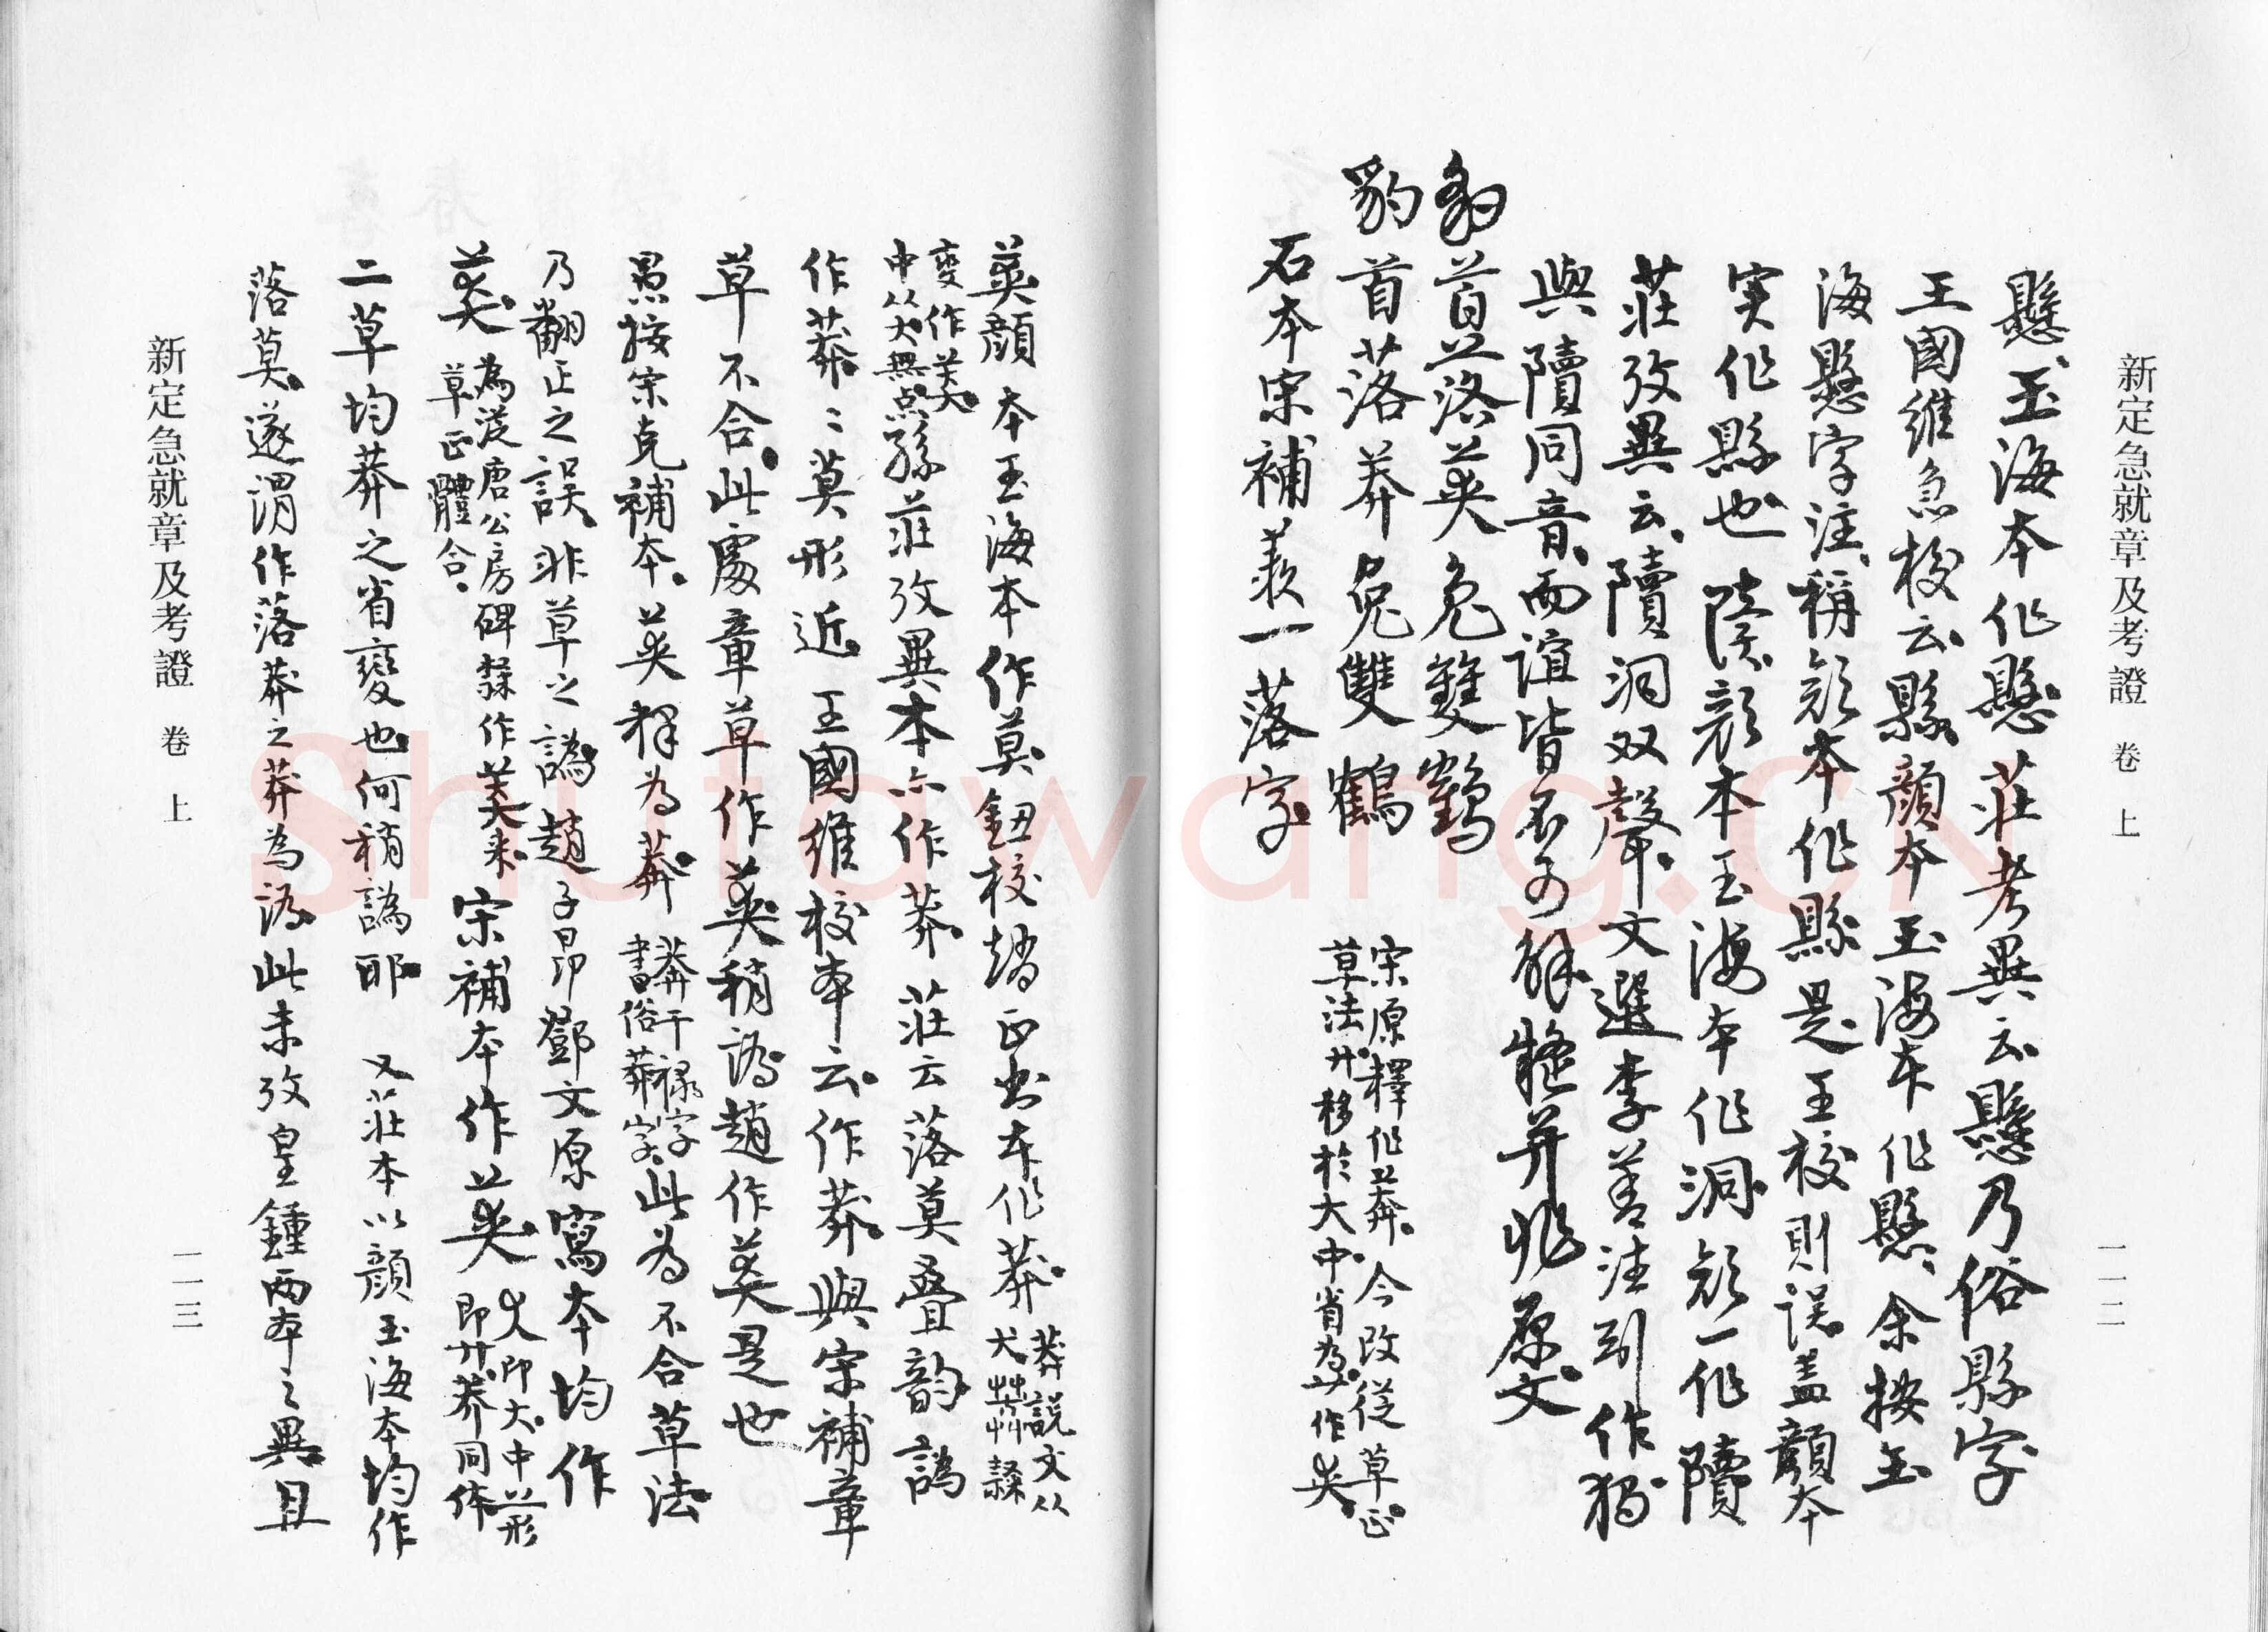 新定急就章及考證 卷上 一一二
懸、玉海本作懸。莊考異云、懸乃俗縣字
王國維急校云、縣、顏本玉海本作懸、余按玉
海懸字注、稱顏本作縣是、王校則誤、蓋顏本
実作縣也 陵、顏本玉海本作洞、顏一作隫
莊攷異云、隫洞双聲、文選李善注引作獨
與隫同音、而誼皆不可解、擬并非原文、
豹首落莽兔雙鶴
豹首落莽兔雙鶴
宋原釋作莽、今改從草正。
草法廾移於大中、省為䒑作英。
石本宋補羨一落字。
英顏本玉海本作莫、鈕校趙正書本作莽。
莽說文从
犬茻艸隸
變作美
中从犬無点
孫莊攷異本亦作莽、莊云落莫疊韵譌
作莽、莽莫形近 王國維校本云、作莽、與宋補章
草不合。此處章草作英稍譌、趙作美是也
愚按宋克補本。英釋為莽。
莽干禄字
書俗莽字、
此為不合草法
乃翻正之誤、非草之譌、趙子昂鄧文原寫本均作
美、
為漢唐公房碑隸作美来、
草正體合。
宋補本作英、
犮即大、中䒑形
即廾、莽同体
二草均莽之省變也、何稍譌耶 又莊本以顏玉海本均作
落莫、遂謂作落莽之莽為譌、此未攷皇鍾兩本之異、且
新定急就章及考證 卷上 一一三